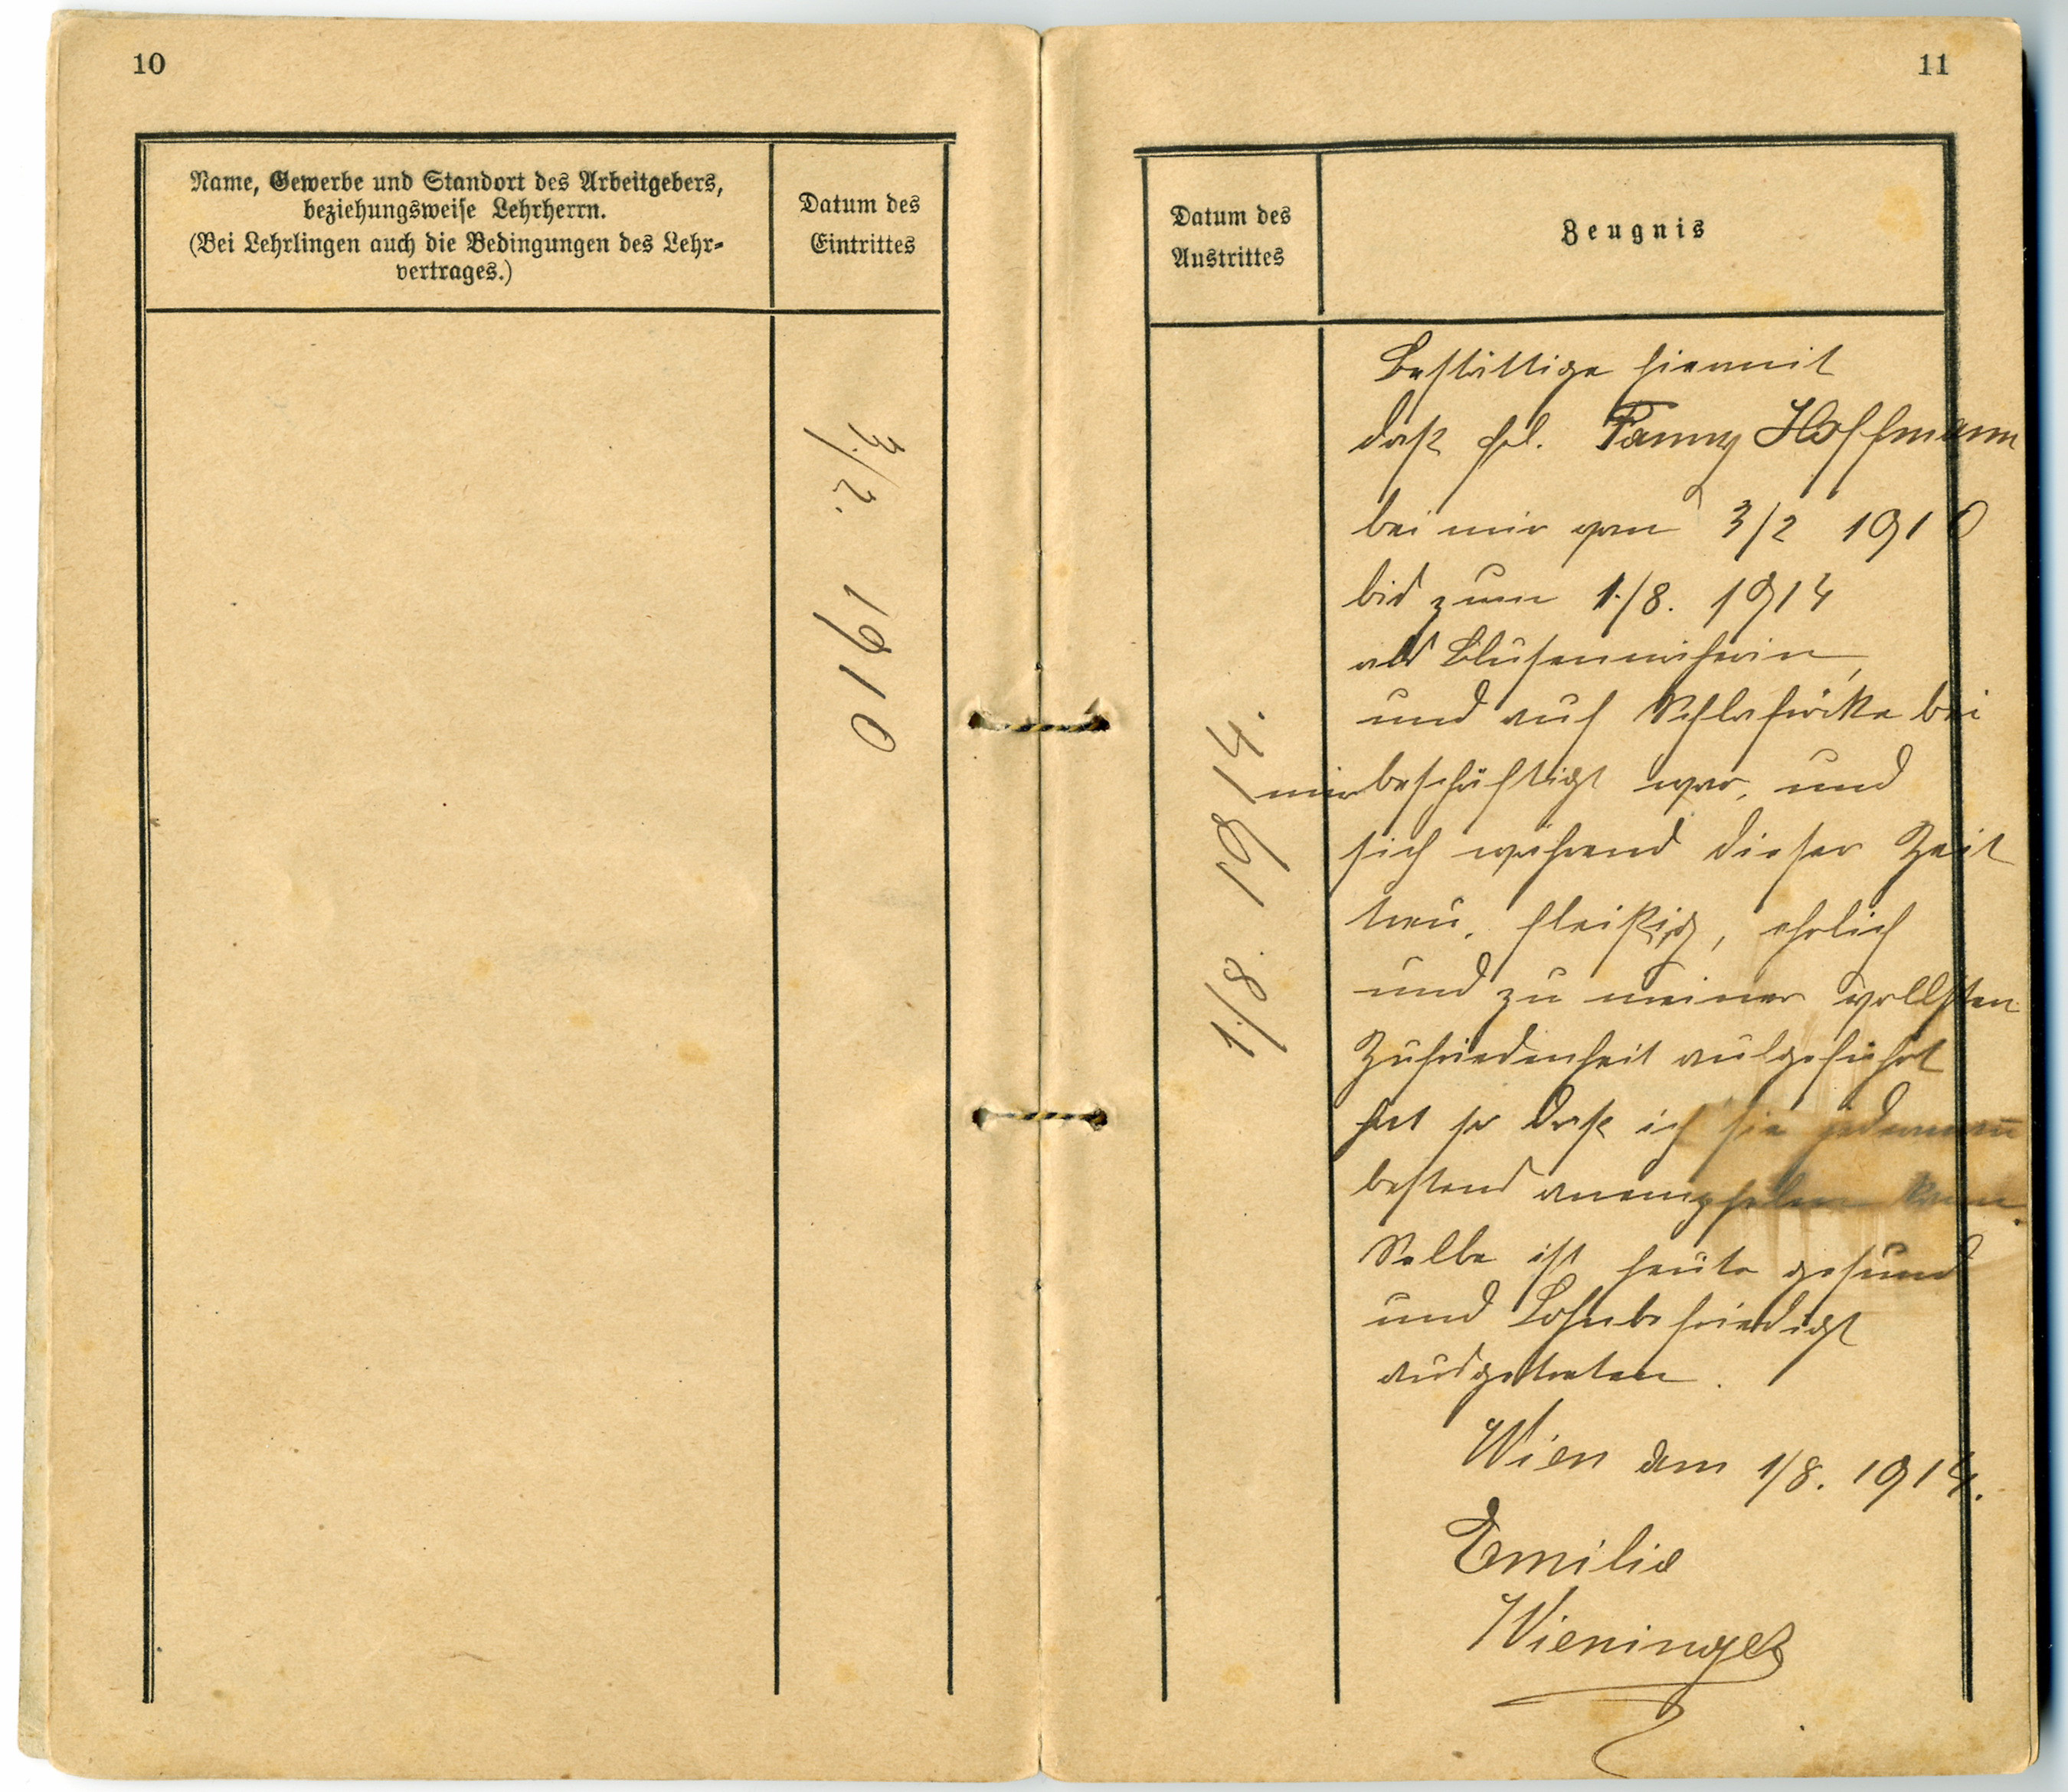 10
Name, Gewerbe und Standort des Arbeitgebers,
beziehungsweise Lehrherrn.
(Bei Lehrlingen auch die Bedingungen des Lehr-
vertrages.)
Datum des
Eintrittes
3./2. 1910
11
Datum des
Austrittes
Zeugnis
1./8. 1914.
Bestättige hiermit
dass Frl. Fanny Hoffmann
bei mir vom 3/2 1910
bis zum 1./8. 1914
als Blusennäherin,
und auf Schlafröcke bei
mir beschäftigt war, und
sich während dieser Zeit
treu, fleißig, ehrlich
und zu meiner vollsten
Zufriedenheit aufgeführt
hat so dass ich sie jedermann
bestens anempfelen kann.
Selbe ist heute gesund
und Lohnbefriedigt
ausgetreten.
Wien am 1/8. 1914.
Emilie
Wieninger